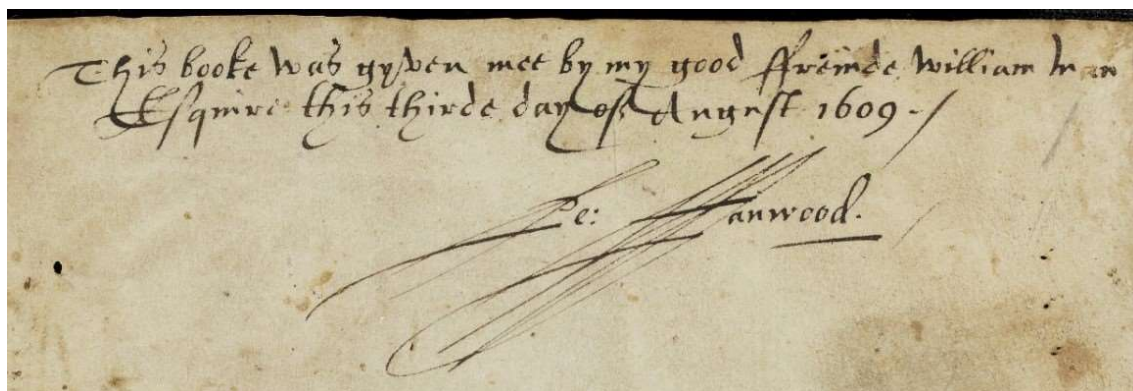 This booke was gyven mee by my good ffreinde William Man
Esquire this thirde day of August 1609 ./
Pe: Manwood.